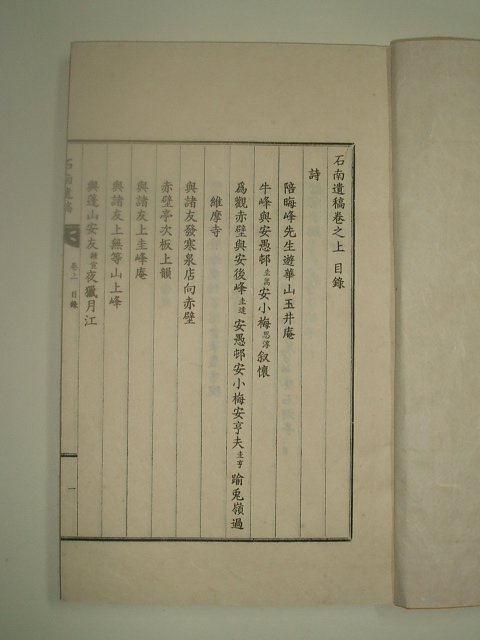 石南遺稿卷之上 目錄
詩
陪晦峰先生遊華山玉井庵
牛峰與安愚邨圭萬安小梅思淳叙懷
爲觀赤壁與安後峰圭璉安愚邨安小梅安亨夫圭亨踰兎嶺過
維摩寺
與諸友發寒泉店向赤壁
赤壁亭次板上韻
與諸友上圭峰庵
與諸友上無等山上峰
與蓬山安友鍾宣夜獵月江
石南遺稿
卷上 目錄
一